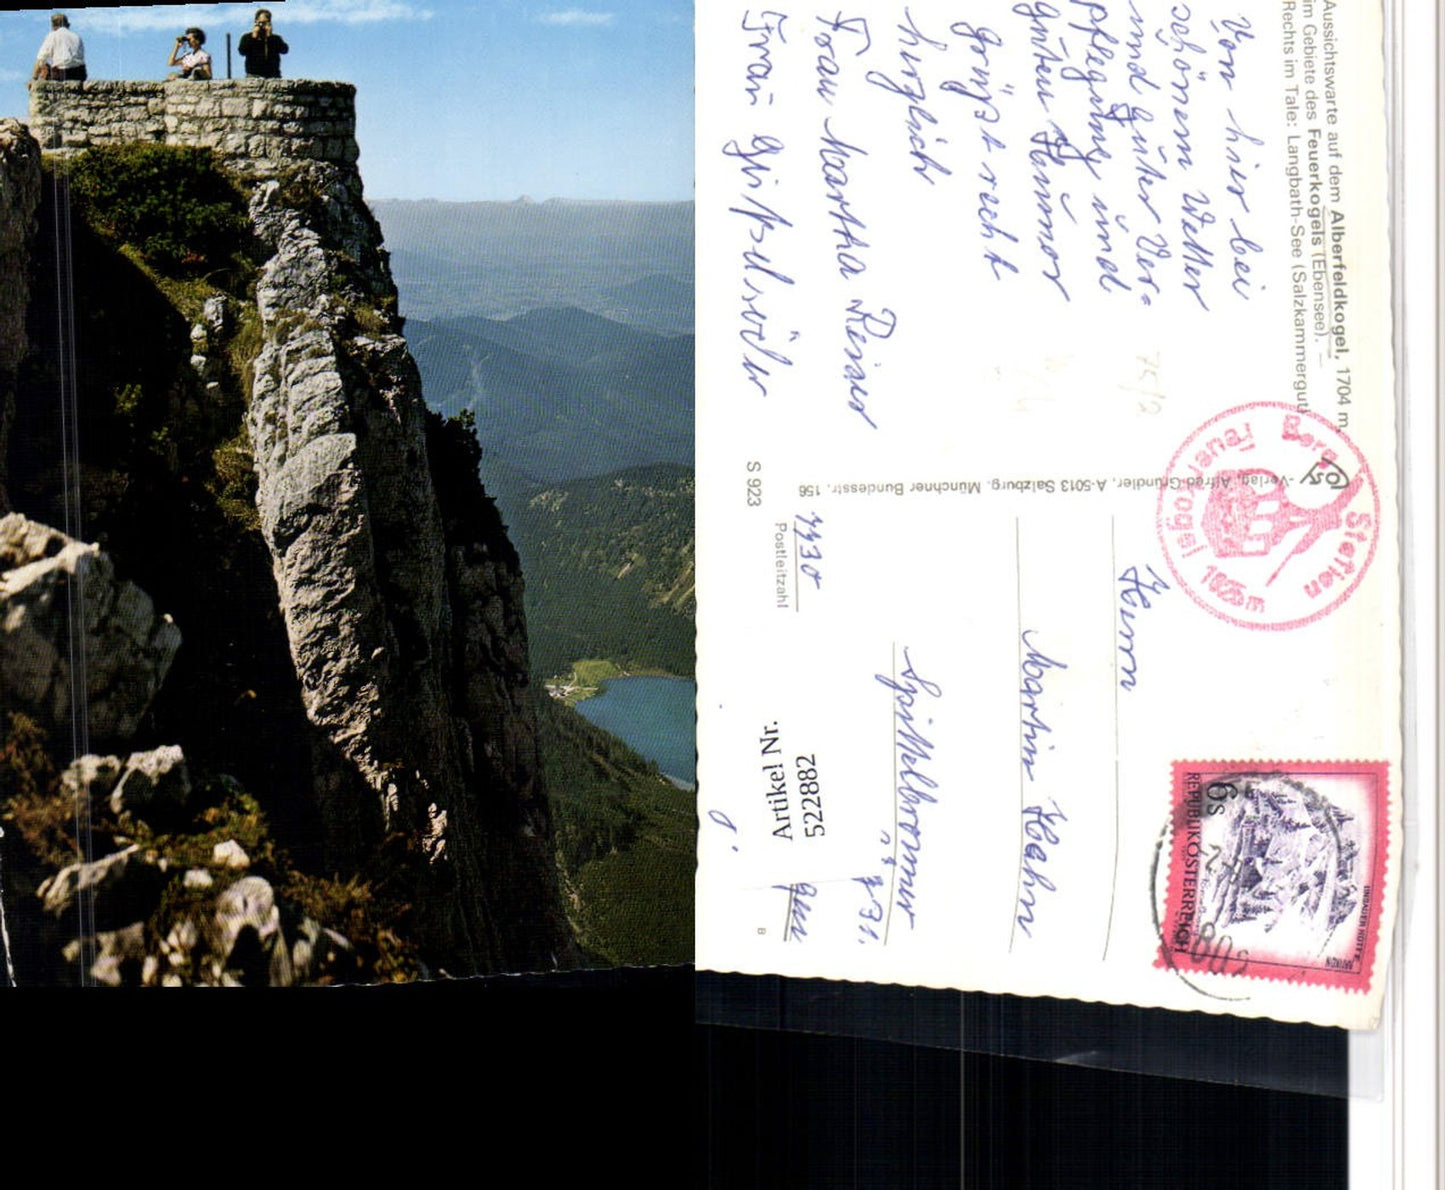 Aussichtswarte auf dem Alberfeldkogel, 1704 m,
im Gebiete des Feuerkogels (Ebensee). —
Rechts im Tale: Langbath-See (Salzkammergut)
Von hier bei
schönem Wetter
und guter Ver=
pflegung und
guten Humor
grüßt recht
herzlich
Frau Martha
Frau
75/2
S 923
-Verlag, Alfred Gründler, A-5013 Salzburg. Münchner Bundesstr. 156
Berg Steffien
Feuerkogel 1625m
6s
REPUBLIK ÖSTERREICH
LINDAUER HÜTTE
RÄTIKON
Herrn
Martin Hahn
Postleitzahl
Artikel Nr.
522882
B